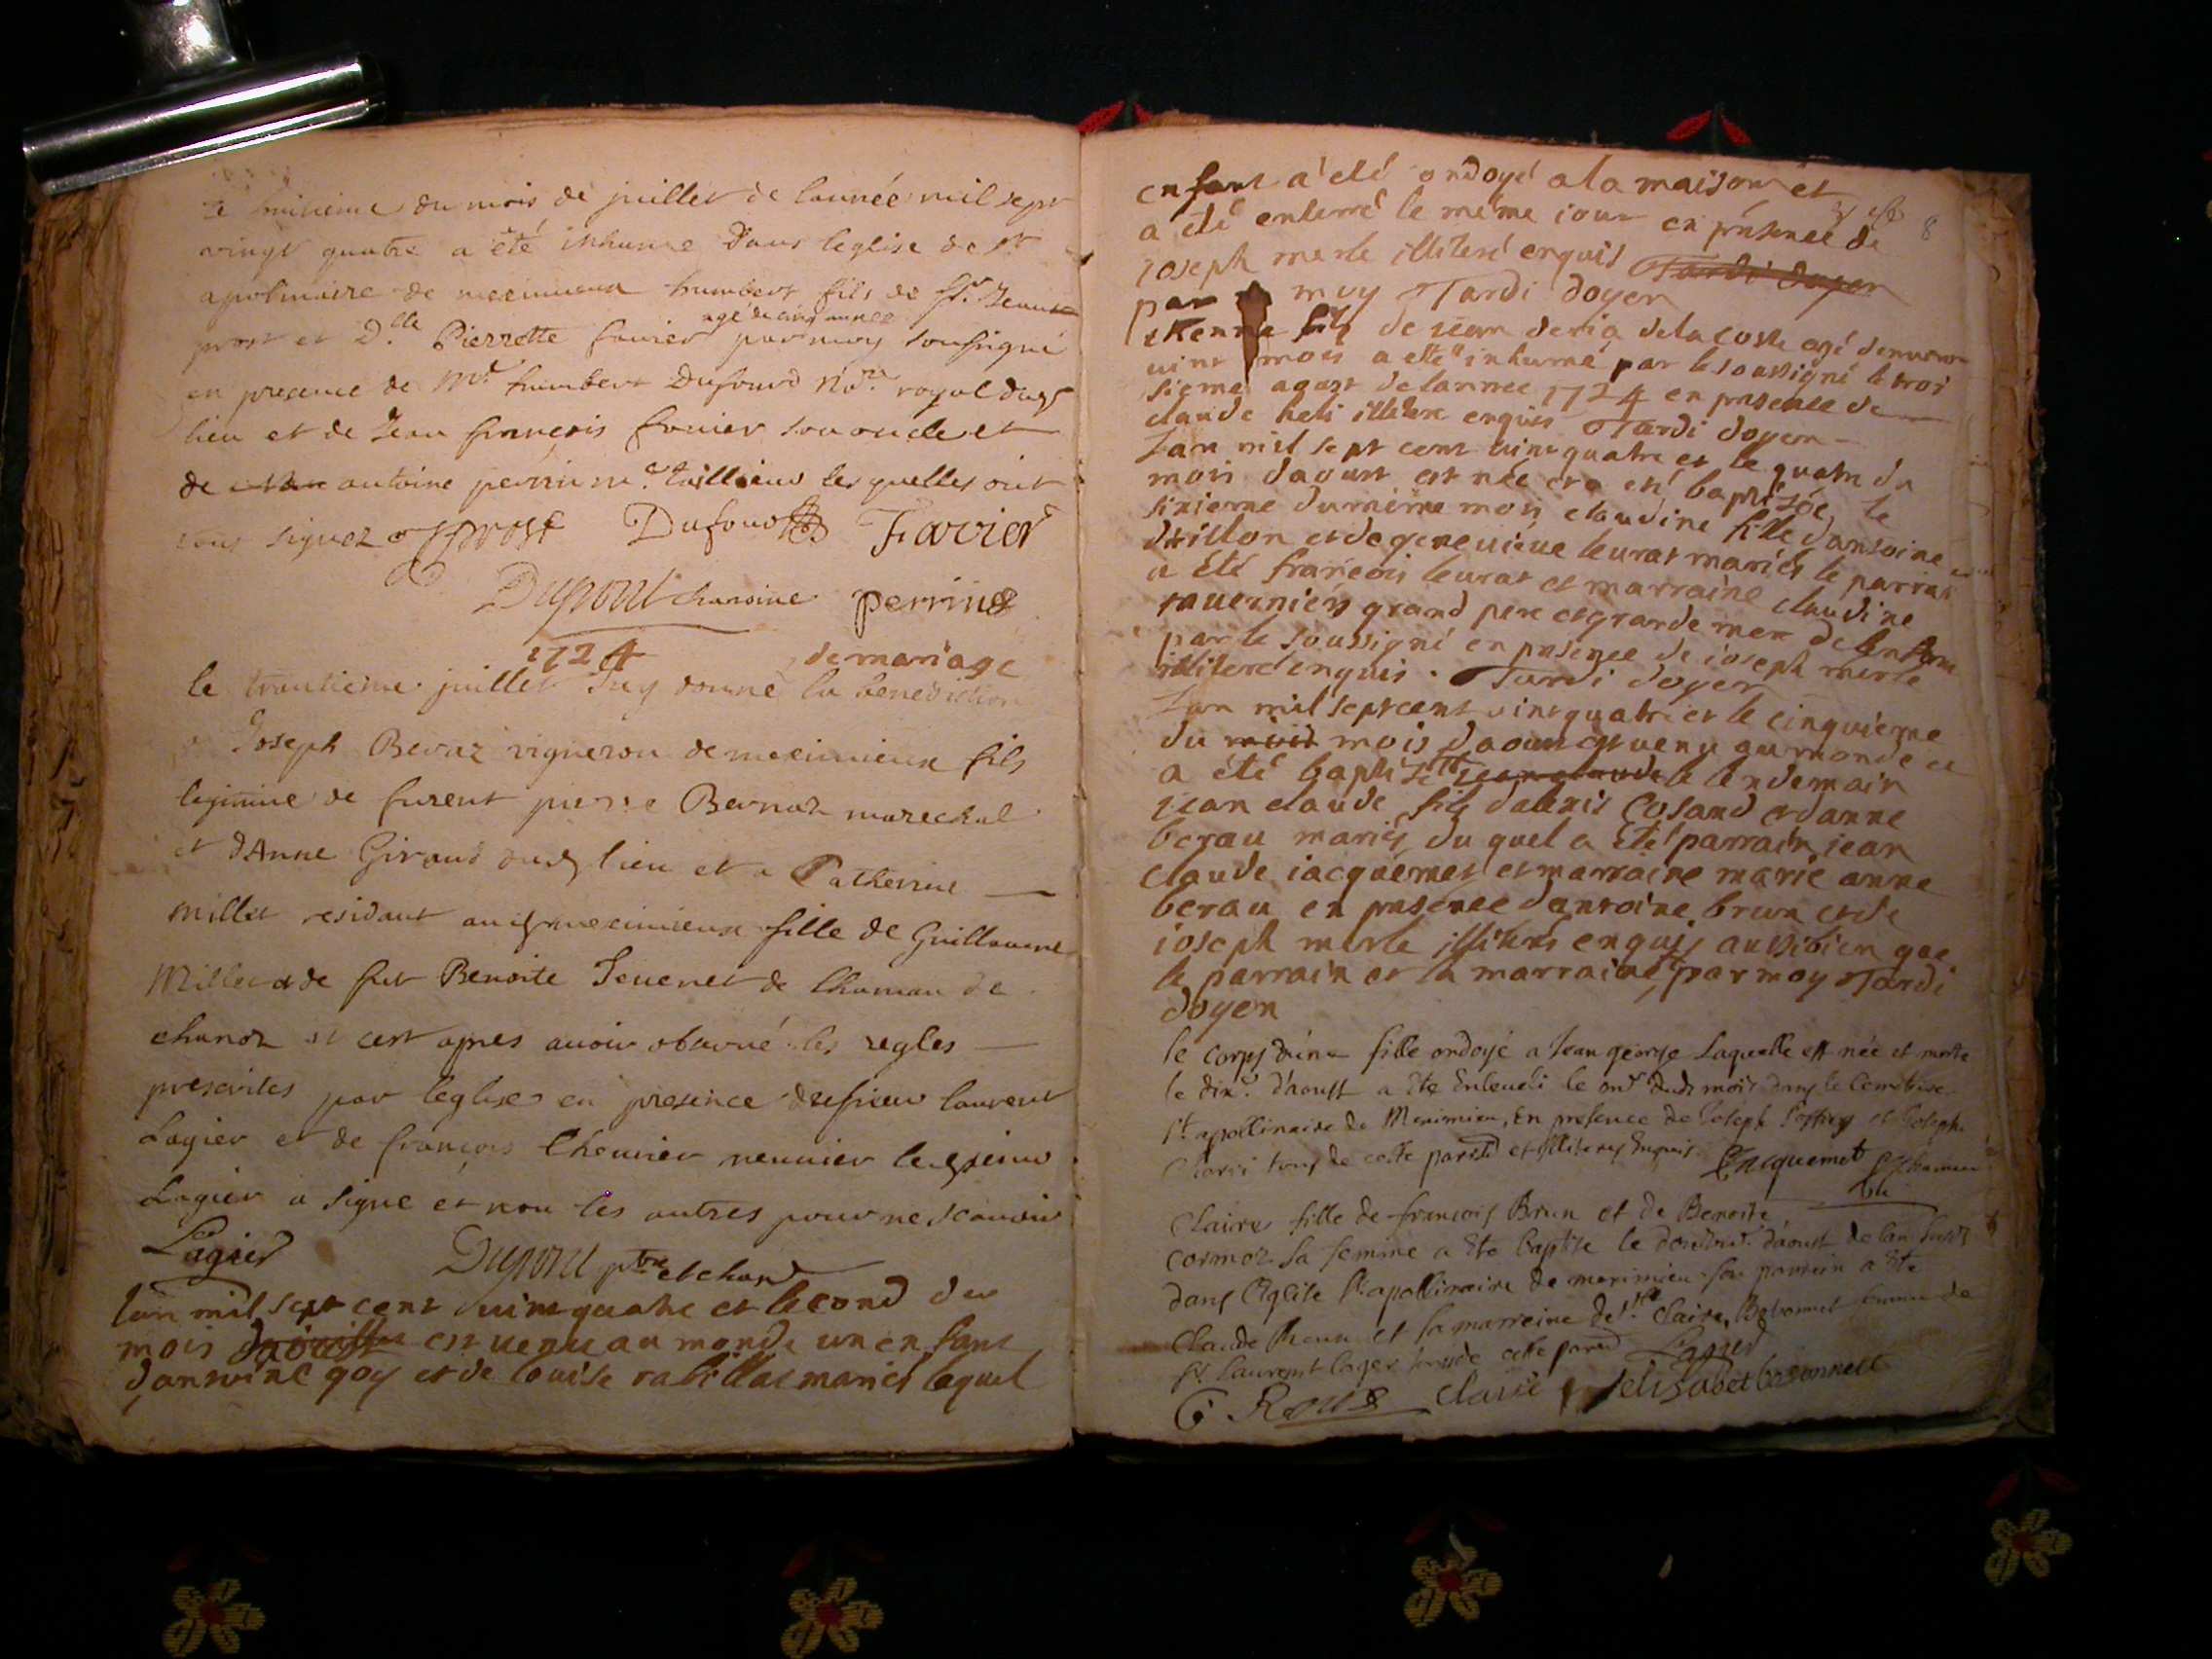 du mois de juillet de lannée mil sept
vingt quatre a été inhume dans leglise de st
apolinaire de meximieux humbert fils de sr. Jean
prost et D.lle Pierrette favier age de cinq annee par moy soussigné
en presence de Mr. humbert Dufour No.re royal dudt
lieu et de Jean francois favier son oncle et
de antoine perrin me. tailleur les quelles ont
tous signez Prost Dufour Favier
Dupont chanoine perrin
1724 de mariage
le trentieme juillet Jay donné la benediction
a Joseph Bernaz vigneron de meximieux fils
legitime de furent pierre Bernaz marechal
et dAnne Giraud dudt lieu et a Catherine
millet residant audt meximieux fille de Guillaume
Millet et de fut Benoite Jeuenet de
chanoz et cest apres avoir observé les regles
prescrites par leglise en presence de sieur laurent
Lagier et de françois Chenier ledt sieur
Lagier a signé et non les autres pour ne scavoir
Lagier Dupont ptre et chane
lan mil sept cent vint quatre et le cond du
mois est venu au monde un enfant
dantoine goy et de louise rabillat mariés lequel
enfant a été ondoyé a la maison et
a été enterré le même iour en présence de 8
ioseph merle illiteré enquis Tardi doyen
par moy Tardi doyen
etienne fils de jean deriq delacoste agé denviron
vint mois a été inhumé par le soussigné le troi
sieme agust de lannee 1724 en presence de
claude heli illitere enquis Tardi doyen
Lan mil sept cent vint quatre et le quatre du
mois daoust est née et a eté baptisée le
sixieme du même mois claudine fille dantoine
drillon et de genevieve leurat mariés le parrain
a été françois leurat et marraine claudine
tavernier grand pere et grande mere de lenfant
par le soussigné en presence de ioseph merle
illiteré enquis. Tardi doyen
Lan mil sept cent vint quatre et le cinquieme
du mois mois daoust est venu au monde et
a été baptisé jean claude le lendemain
jean claude fils dalexis Cosand et danne
berau mariés du quel a été parrain jean
claude iacquemet et marraine marie anne
berau en presence dantoine brun et de
ioseph merle illiterés enquis aussi bien que
le parrain et la marraine, par moy Tardi
doyen
le corps dune fille ondoyé a Jean george Laquelle est née et morte
le dix.e daoust a été Enseveli le onz.e dudt mois dans le Cemetiere
st apollinaire de Meximieu, En presence de Joseph et Joseph
tous de cette paroisse et illiteres Enquis Jacquemet
Claire fille de françois Brun et de Benoite
cormoz sa femme a été baptisé le d'aoust de lan susdt
dans l'Eglise st apollinaire de meximieu son parrein a été
Claude et sa marreine de.lle Claire Bosonnet femme de
sr. Laurent lagier de cette parois. Lagier
C Claire elisabet bosonnett